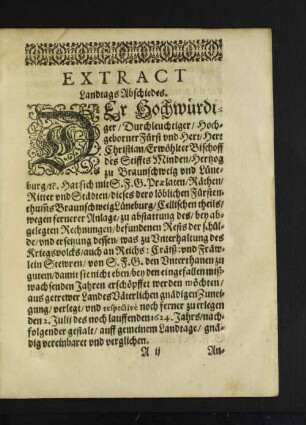 EXTRACT
Landtags Abschiedes.
DEr Hochwürdi-
ger/ Durchleuchtiger/ Hoch-
geborner Fürst vnd Herr/ Herr
Christian/ Erwöhlter Bischoff
des Stiffts Minden/ Hertzog
zu Braunschweig vnd Lüne-
burg/ ꝛc. Hat sich mit S. F. G. Prælaten/ Räthen/
Ritter vnd Städten/ dieses dero löblichen Fürsten-
thumbs Braunschweig Lüneburg/ Cellischen theils/
wegen fernerer Anlage/ zu abstattung des/ bey ab-
gelegten Rechnungen/ befundenen Rests der schül-
de/ vnd ersetzung dessen/ was zu Vnterhaltung des
Kriegsvolcks/ auch an Reichs: Cräiß: vnd Fräw-
lein Stewren/ von S. F. G. den Vnterthanen zu
gutem/ damit sie nicht eben/ bey den eingefallen miß-
wachsenden Jahren erschöpffet werden möchten/
aus getrewer Landes Väterlichen gnädigen Zunei-
gung/ verlegt/ vnd respectivè noch ferner zu erlegen
den 2. Julij des noch lauffenden 1624. Jahrs/ nach-
folgender gestalt/ auff gemeinem Landtage/ gnä-
dig vereinbaret vnd verglichen.
A ij An-